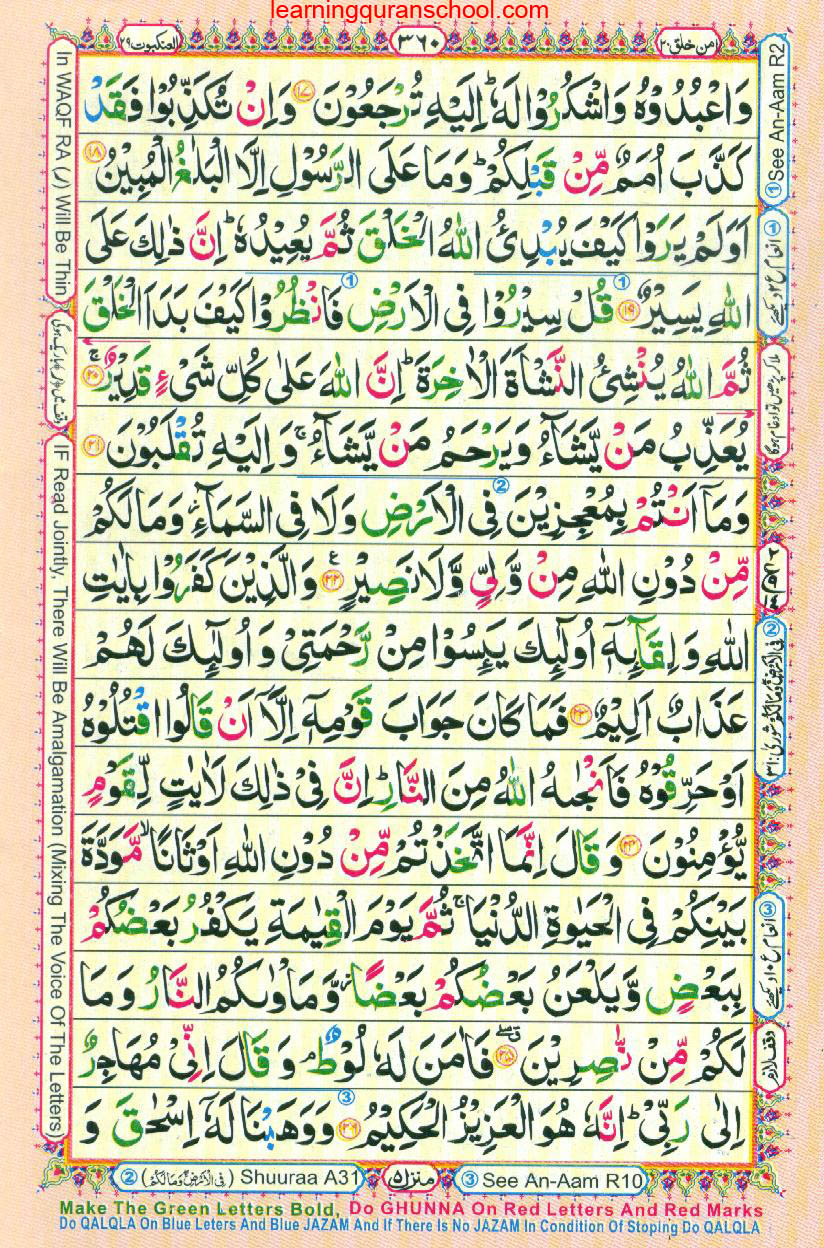 learningquranschool.com
امن خلق ٢٠
٣٦٠
العنكبوت ٢٩
وَاعْبُدُوْهُ وَاشْكُرُوْا لَهٗ ؕ اِلَيْهِ تُرْجَعُوْنَ ﴿۱۷﴾ وَاِنْ تُكَذِّبُوْا فَقَدْ
كَذَّبَ اُمَمٌ مِّنْ قَبْلِكُمْ ؕ وَمَا عَلَى الرَّسُوْلِ اِلَّا الْبَلٰغُ الْمُبِيْنُ ﴿۱۸﴾
اَوَلَمْ يَرَوْا كَيْفَ يُبْدِئُ اللّٰهُ الْخَلْقَ ثُمَّ يُعِيْدُهٗ ؕ اِنَّ ذٰلِكَ عَلَى
اللّٰهِ يَسِيْرٌ ﴿۱۹﴾ قُلْ سِيْرُوْا فِى الْاَرْضِ فَانْظُرُوْا كَيْفَ بَدَاَ الْخَلْقَ
ثُمَّ اللّٰهُ يُنْشِئُ النَّشْاَةَ الْاٰخِرَةَ ؕ اِنَّ اللّٰهَ عَلٰى كُلِّ شَىْءٍ قَدِيْرٌ ۚ ﴿۲۰﴾
يُعَذِّبُ مَنْ يَّشَآءُ وَيَرْحَمُ مَنْ يَّشَآءُ ۚ وَاِلَيْهِ تُقْلَبُوْنَ ﴿۲۱﴾
وَمَاۤ اَنْتُمْ بِمُعْجِزِيْنَ فِى الْاَرْضِ وَلَا فِى السَّمَآءِ ؗ وَمَا لَكُمْ
مِّنْ دُوْنِ اللّٰهِ مِنْ وَّلِىٍّ وَّلَا نَصِيْرٍ ﴿۲۲﴾ ع وَالَّذِيْنَ كَفَرُوْا بِاٰيٰتِ
اللّٰهِ وَلِقَآئِهٖۤ اُولٰٓئِكَ يَئِسُوْا مِنْ رَّحْمَتِىْ وَاُولٰٓئِكَ لَهُمْ
عَذَابٌ اَلِيْمٌ ﴿۲۳﴾ فَمَا كَانَ جَوَابَ قَوْمِهٖۤ اِلَّاۤ اَنْ قَالُوا اقْتُلُوْهُ
اَوْ حَرِّقُوْهُ فَاَنْجٰىهُ اللّٰهُ مِنَ النَّارِ ؕ اِنَّ فِىْ ذٰلِكَ لَاٰيٰتٍ لِّقَوْمٍ
يُّؤْمِنُوْنَ ﴿۲۴﴾ وَقَالَ اِنَّمَا اتَّخَذْتُمْ مِّنْ دُوْنِ اللّٰهِ اَوْثَانًا ۙ مَّوَدَّةَ
بَيْنِكُمْ فِى الْحَيٰوةِ الدُّنْيَا ۚ ثُمَّ يَوْمَ الْقِيٰمَةِ يَكْفُرُ بَعْضُكُمْ
بِبَعْضٍ وَّيَلْعَنُ بَعْضُكُمْ بَعْضًا ؗ وَّمَاْوٰىكُمُ النَّارُ وَمَا
لَكُمْ مِّنْ نّٰصِرِيْنَ ﴿۲۵﴾ فَاٰمَنَ لَهٗ لُوْطٌ ۘ وَقَالَ اِنِّىْ مُهَاجِرٌ
اِلٰى رَبِّىْ ؕ اِنَّهٗ هُوَ الْعَزِيْزُ الْحَكِيْمُ ﴿۲۶﴾ وَوَهَبْنَا لَهٗۤ اِسْحٰقَ وَ
In WAQF RA (ر) Will Be Thin
IF Read Jointly, There Will Be Amalgamation (Mixing The Voice Of The Letters)
① See An-Aam R2
وقف لازم
② (فى الارض ومالكم) Shuuraa A31
منزل ۵
③ See An-Aam R10
Make The Green Letters Bold, Do GHUNNA On Red Letters And Red Marks
Do QALQLA On Blue Leters And Blue JAZAM And If There Is No JAZAM In Condition Of Stoping Do QALQLA